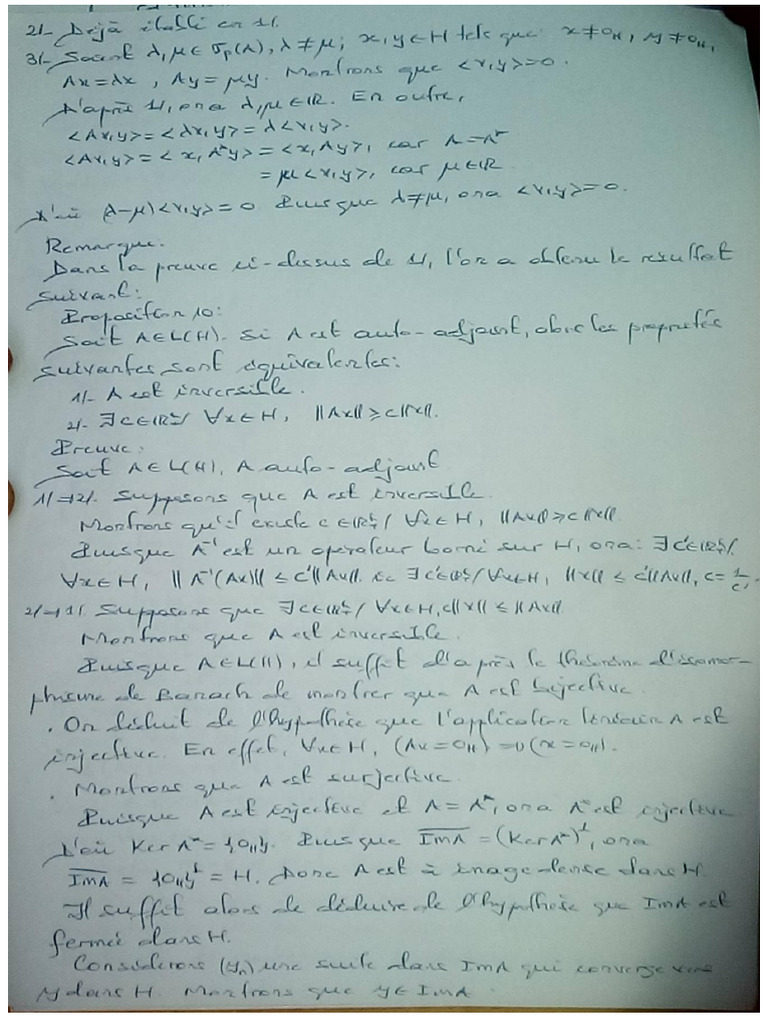 2/- Déjà établi en 1/.
3/- Soient λ, μ ∈ σp(A), λ ≠ μ ; x, y ∈ H tels que x ≠ 0_H, y ≠ 0_H,
Ax = λx, Ay = μy. Montrons que <x,y> = 0.
D'après 1/, on a λ, μ ∈ IR. En outre,
<Ax,y> = <λx,y> = λ<x,y>.
<Ax,y> = <x, A*y> = <x, Ay>, car A = A*
= μ<x,y>, car μ ∈ IR
D'où (λ-μ)<x,y> = 0. Puisque λ ≠ μ, on a <x,y> = 0.
Remarque.
Dans la preuve ci-dessus de 1/, l'on a obtenu le résultat
suivant :
Proposition 10 :
Soit A ∈ L(H). Si A est auto-adjoint, alors les propriétés
suivantes sont équivalentes :
1/- A est inversible.
2/- ∃ c ∈ IR*₊ / ∀x ∈ H, ||Ax|| ≥ c||x||.
Preuve :
Soit A ∈ L(H), A auto-adjoint
1/ ⇒ 2/. Supposons que A est inversible.
Montrons qu'il existe c ∈ IR*₊ / ∀x ∈ H, ||Ax|| ≥ c||x||
Puisque A⁻¹ est un opérateur borné sur H, on a : ∃ c' ∈ IR*₊ /
∀x ∈ H, ||A⁻¹(Ax)|| ≤ c'||Ax||. ie ∃ c' ∈ IR*₊ / ∀x ∈ H, ||x|| ≤ c'||Ax||, c = 1/c'.
2/ ⇒ 1/. Supposons que ∃ c ∈ IR*₊ / ∀x ∈ H, c||x|| ≤ ||Ax||
Montrons que A est inversible.
Puisque A ∈ L(H), il suffit d'après le théorème d'isomor-
phisme de Banach de montrer que A est bijective.
. On déduit de l'hypothèse que l'application linéaire A est
injective. En effet, ∀x ∈ H, (Ax = 0_H) ⇒ (x = 0_H).
. Montrons que A est surjective.
Puisque A est injective et A = A*, on a A* est injective
D'où Ker A* = {0_H}. Puisque \overline{ImA} = (Ker A*)^⊥, on a
\overline{ImA} = {0_H}^⊥ = H. Donc A est à image dense dans H.
Il suffit alors de déduire de l'hypothèse que ImA est
fermée dans H.
Considérons (yₙ) une suite dans ImA qui converge vers
y dans H. Montrons que y ∈ ImA.